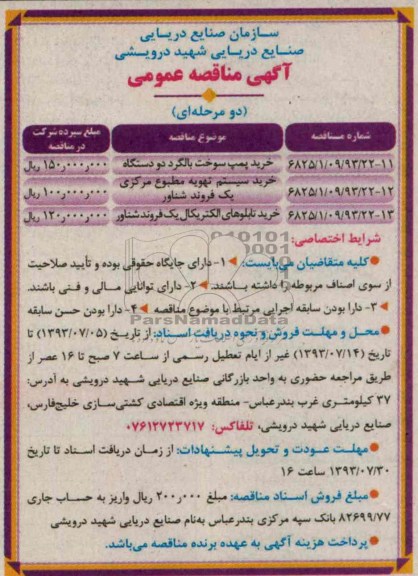 سازمان صنایع دریایی
صنایع دریایی شهید درویشی
آگهی مناقصه عمومی
(دو مرحله‌ای)
شماره مناقصه | موضوع مناقصه | مبلغ سپرده شرکت در مناقصه
۶۸۲۵/۱/۰۹/۹۳/۲۲-۱۱ | خرید پمپ سوخت بالگرد دو دستگاه | ۱۵۰٫۰۰۰٫۰۰۰ ریال
۶۸۲۵/۱/۰۹/۹۳/۲۲-۱۲ | خرید سیستم تهویه مطبوع مرکزی یک فروند شناور | ۱۰۰٫۰۰۰٫۰۰۰ ریال
۶۸۲۵/۱/۰۹/۹۳/۲۲-۱۳ | خرید تابلوهای الکتریکال یک فروند شناور | ۱۲۰٫۰۰۰٫۰۰۰ ریال
شرایط اختصاصی:
●کلیه متقاضیان می‌بایست: ◄۱-دارای جایگاه حقوقی بوده و تأیید صلاحیت
از سوی اصناف مربوطه را داشته باشند. ◄۲- دارای توانایی مالی و فنی باشند.
◄۳- دارا بودن سابقه اجرایی مرتبط با موضوع مناقصه ◄۴- دارا بودن حسن سابقه
●محل و مهلت فروش و نحوه دریافت اسناد: از تاریخ (۱۳۹۳/۰۷/۰۵) تا
تاریخ (۱۳۹۳/۰۷/۱۴) غیر از ایام تعطیل رسمی از ساعت ۷ صبح تا ۱۶ عصر از
طریق مراجعه حضوری به واحد بازرگانی صنایع دریایی شهید درویشی به آدرس:
۳۷ کیلومتری غرب بندرعباس- منطقه ویژه اقتصادی کشتی‌سازی خلیج‌فارس،
صنایع دریایی شهید درویشی، تلفاکس: ۰۷۶۱۲۷۲۳۷۱۷
●مهلت عودت و تحویل پیشنهادات: از زمان دریافت اسناد تا تاریخ
۱۳۹۳/۰۷/۳۰ ساعت ۱۶
●مبلغ فروش اسناد مناقصه: مبلغ ۲۰۰٫۰۰۰ ریال واریز به حساب جاری
۸۲۶۹۹/۷۷ بانک سپه مرکزی بندرعباس به‌نام صنایع دریایی شهید درویشی
●پرداخت هزینه آگهی به عهده برنده مناقصه می‌باشد.
ParsNamadData